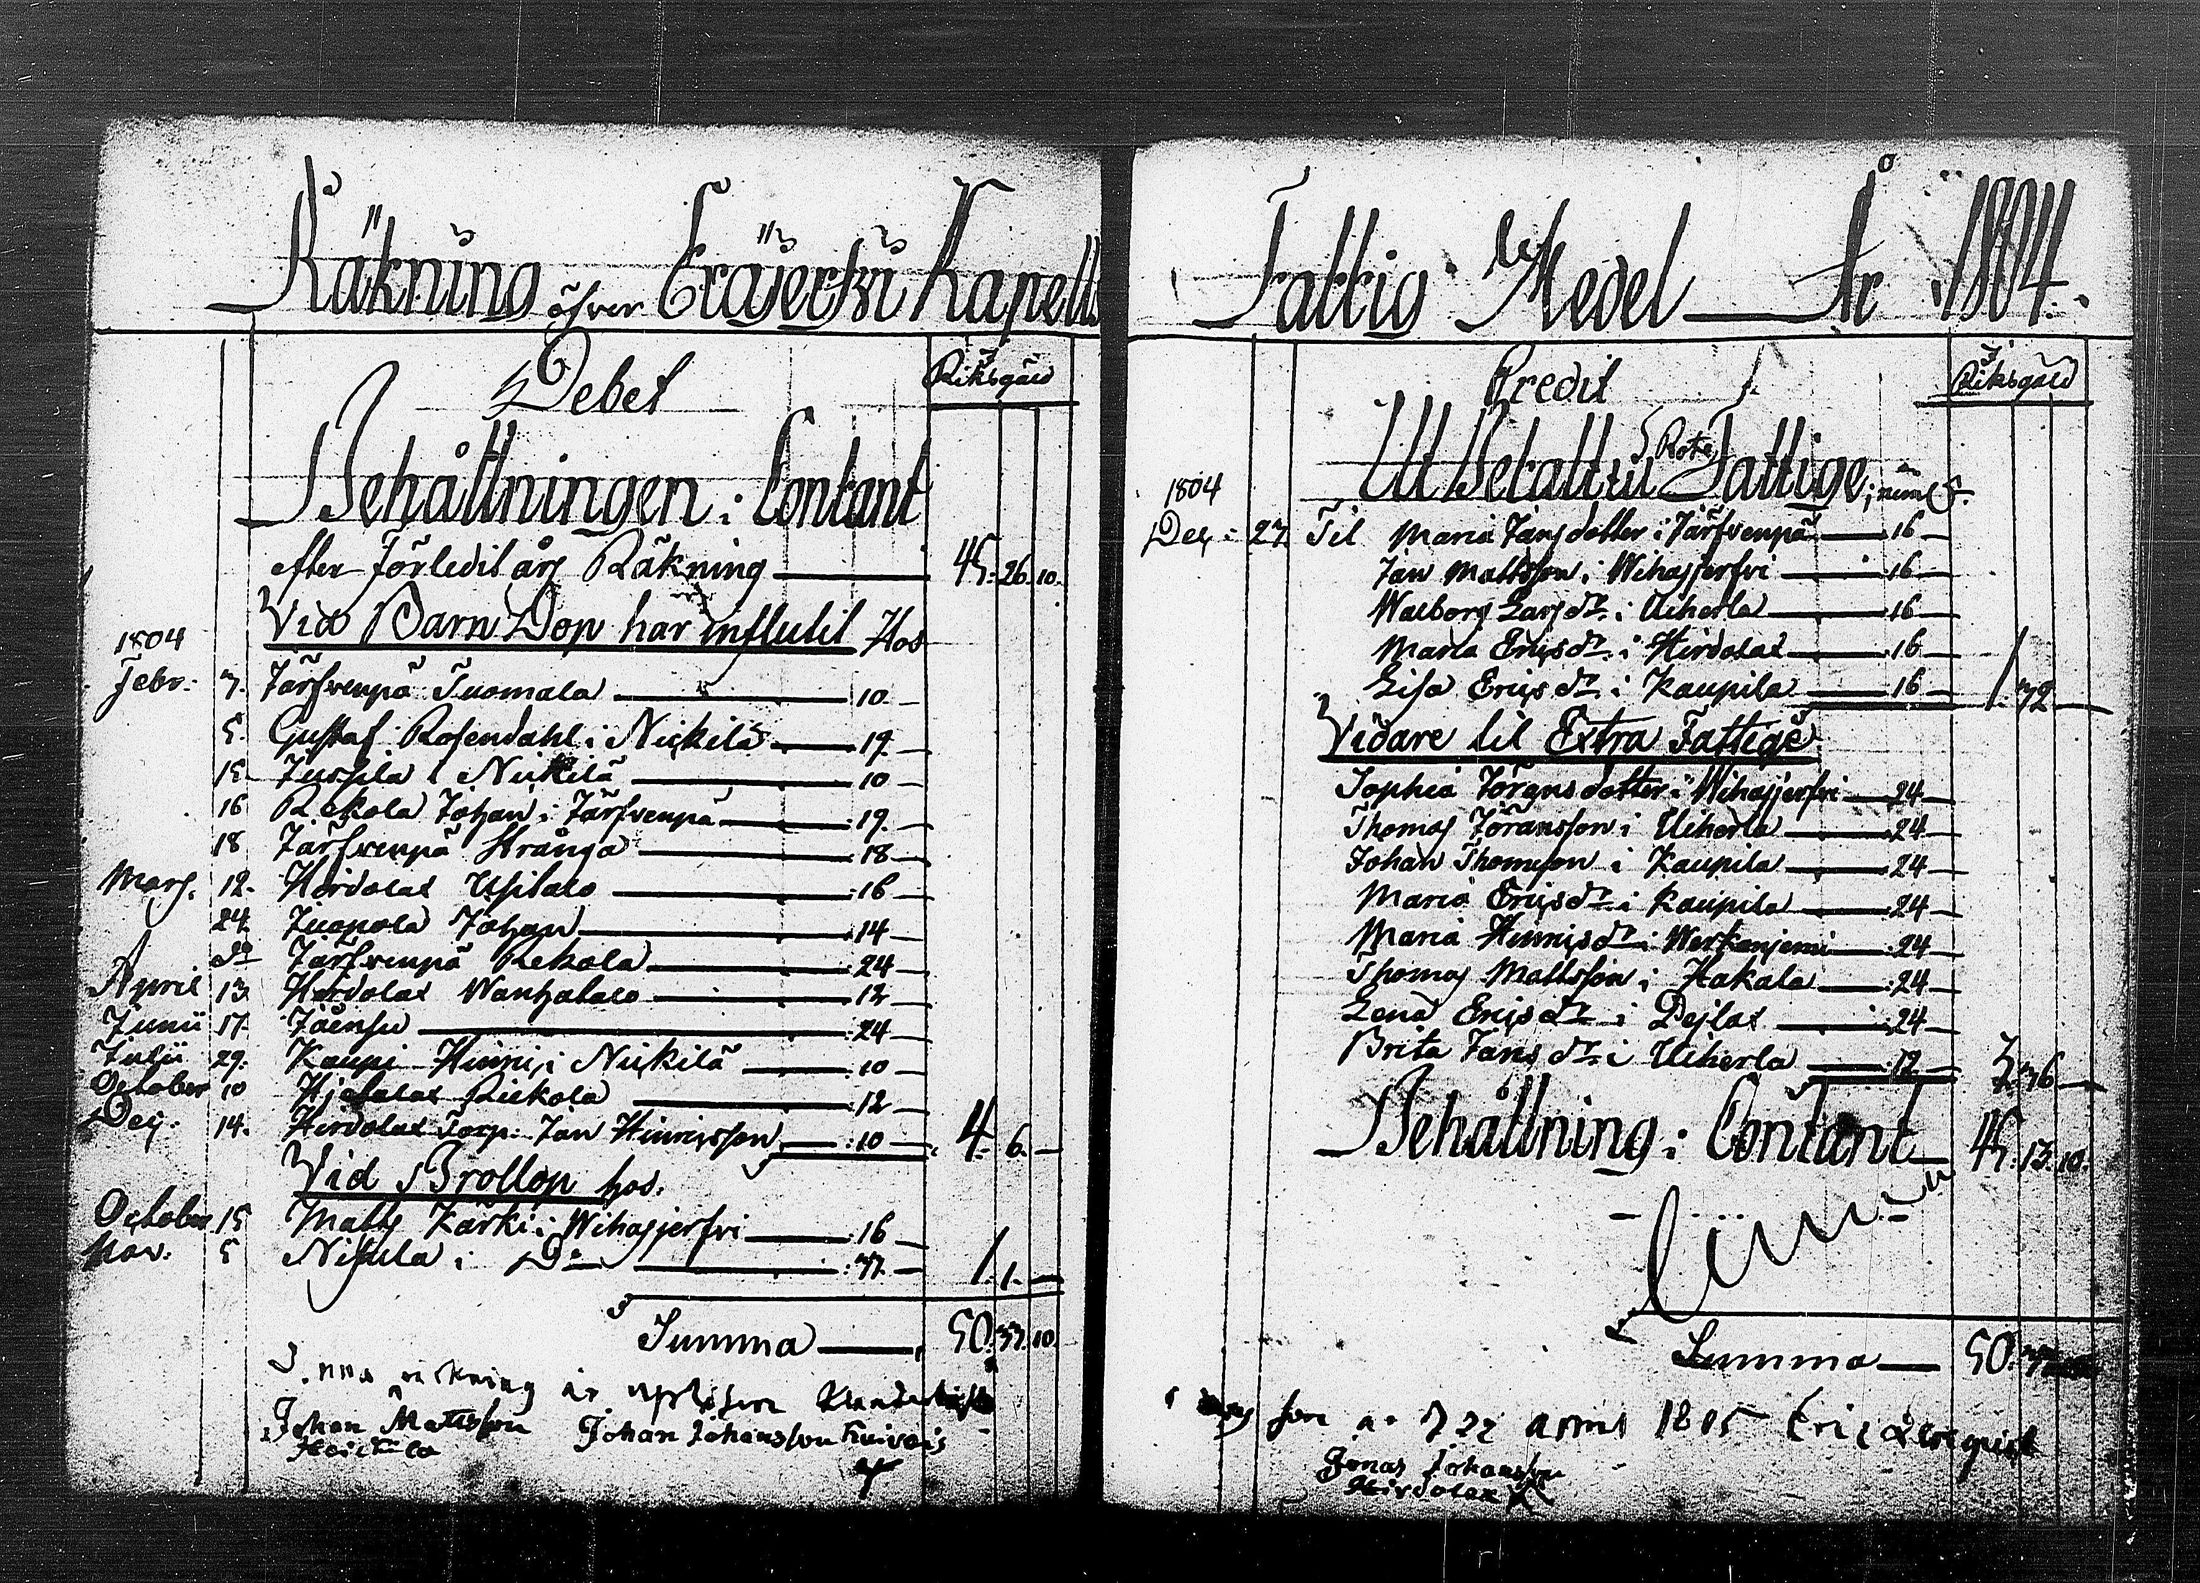 Räkning öfver Eräjerfvi Kapells
Debet
Riksgäld
Behållningen: Contant
efter förledit års Räkning 45. 26. 10.
Vid Barn Dop har influtit Hos
1804
Febr: 7. Järfvenpä Tuomala 10.
5. Gustaf Rosendahl i Nickilä 19.
15. Jussila i Nickilä 10
16 Rekola Johan i Järfvenpä 19.
18 Järfvenpä Stränga 18
Mars. 12. Hirdolax Ylitalo 16
24. Juopola Johan 14
do Järfvenpä Rekola 24
April 13. Hirdolax Wanhatalo 12
Junii 17. Joensu 24
Julii 29. Kaupi Hinric i Nickilä 10
October 10 Hjetalax Rickola 12
Dec: 14. Hirdolax Torp: Jan Hinricsson 10 4. 6.
Vid Bröllop hos.
October 15 Matts Kärki i Wihasjerfvi 16
Nov. 5 Nikula i Do 33. 1. 1.
Summa 50. 33. 10.
räkning är
Johan Mattsson Johan Johansson
Heickilä
Fattig Medel År 1804.
Credit
Riksgäld
Ut Betalt til Rote Fattige; näml.
1804
Dec: 27. Til Maria Jansdotter i Järfvenpä 16
Jan Mattsson i Wihasjerfvi 16
Walborg Larsdr. i Uiherla 16
Maria Ericsdr. i Hirdolax 16
Lisa Ericsdr. i Kaupila 16 1. 32
Vidare til Extra Fattige
Sophia Jöransdotter i Wihasjerfvi 24
Thomas Jöransson i Uiherla 24
Johan Thomsson i Kaupila 24
Maria Ericsdr. i Kaupila 24
Maria Hinricsdr. i Werkanjemi 24
Thomas Mattsson i Hakala 24
Lena Ericsdr. i Pejlax 24
Brita Jansdr. i Uiherla 12 3. 36
Behållning: Contant 45. 13. 10.
Summa 50. 33.
1805 Eric
Jonas Johansson
Hirdolax